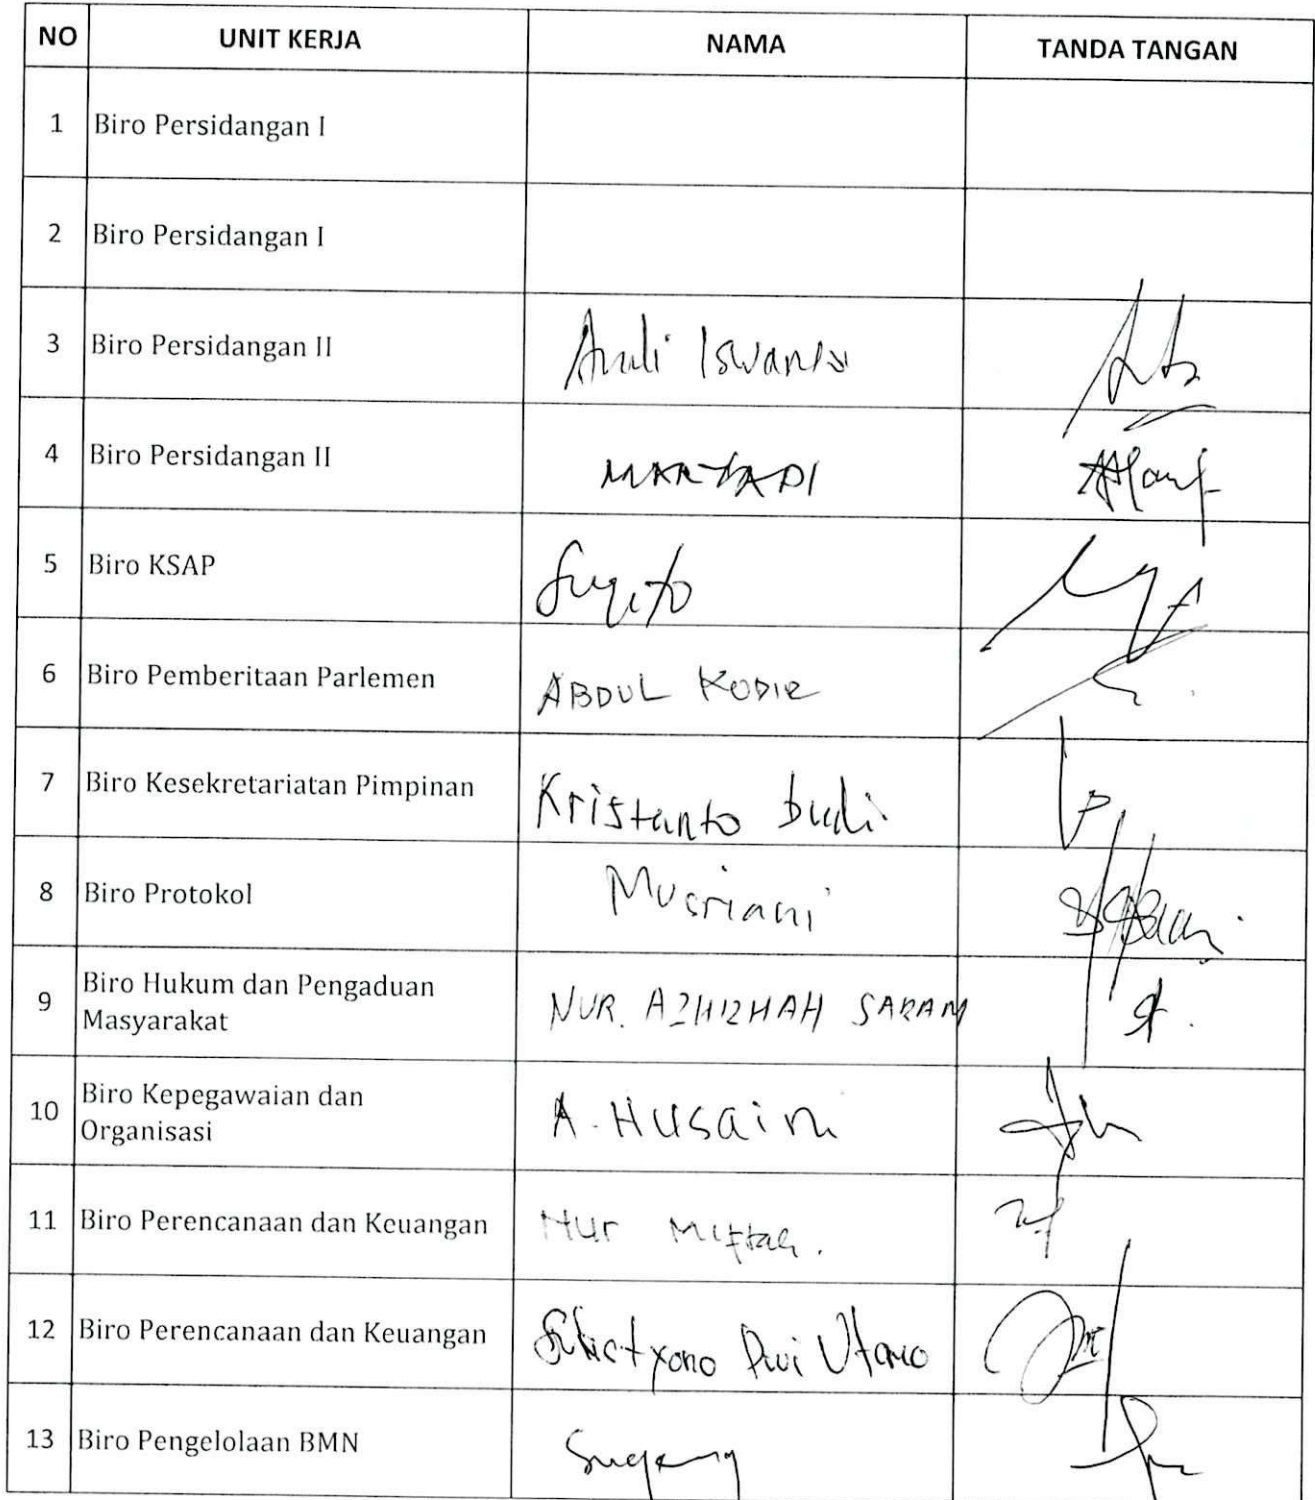 NO UNIT KERJA NAMA TANDA TANGAN
1 Biro Persidangan I
2 Biro Persidangan I
3 Biro Persidangan II Andi Iswanto
4 Biro Persidangan II MARTADI
5 Biro KSAP Sugito
6 Biro Pemberitaan Parlemen ABDUL KODIR
7 Biro Kesekretariatan Pimpinan Kristanto budi
8 Biro Protokol Musriani
9 Biro Hukum dan Pengaduan
Masyarakat NUR. AZHIZHAH SARAM
10 Biro Kepegawaian dan
Organisasi A. Husaini
11 Biro Perencanaan dan Keuangan Nur Miftah.
12 Biro Perencanaan dan Keuangan Dwi Utomo
13 Biro Pengelolaan BMN Sugeng